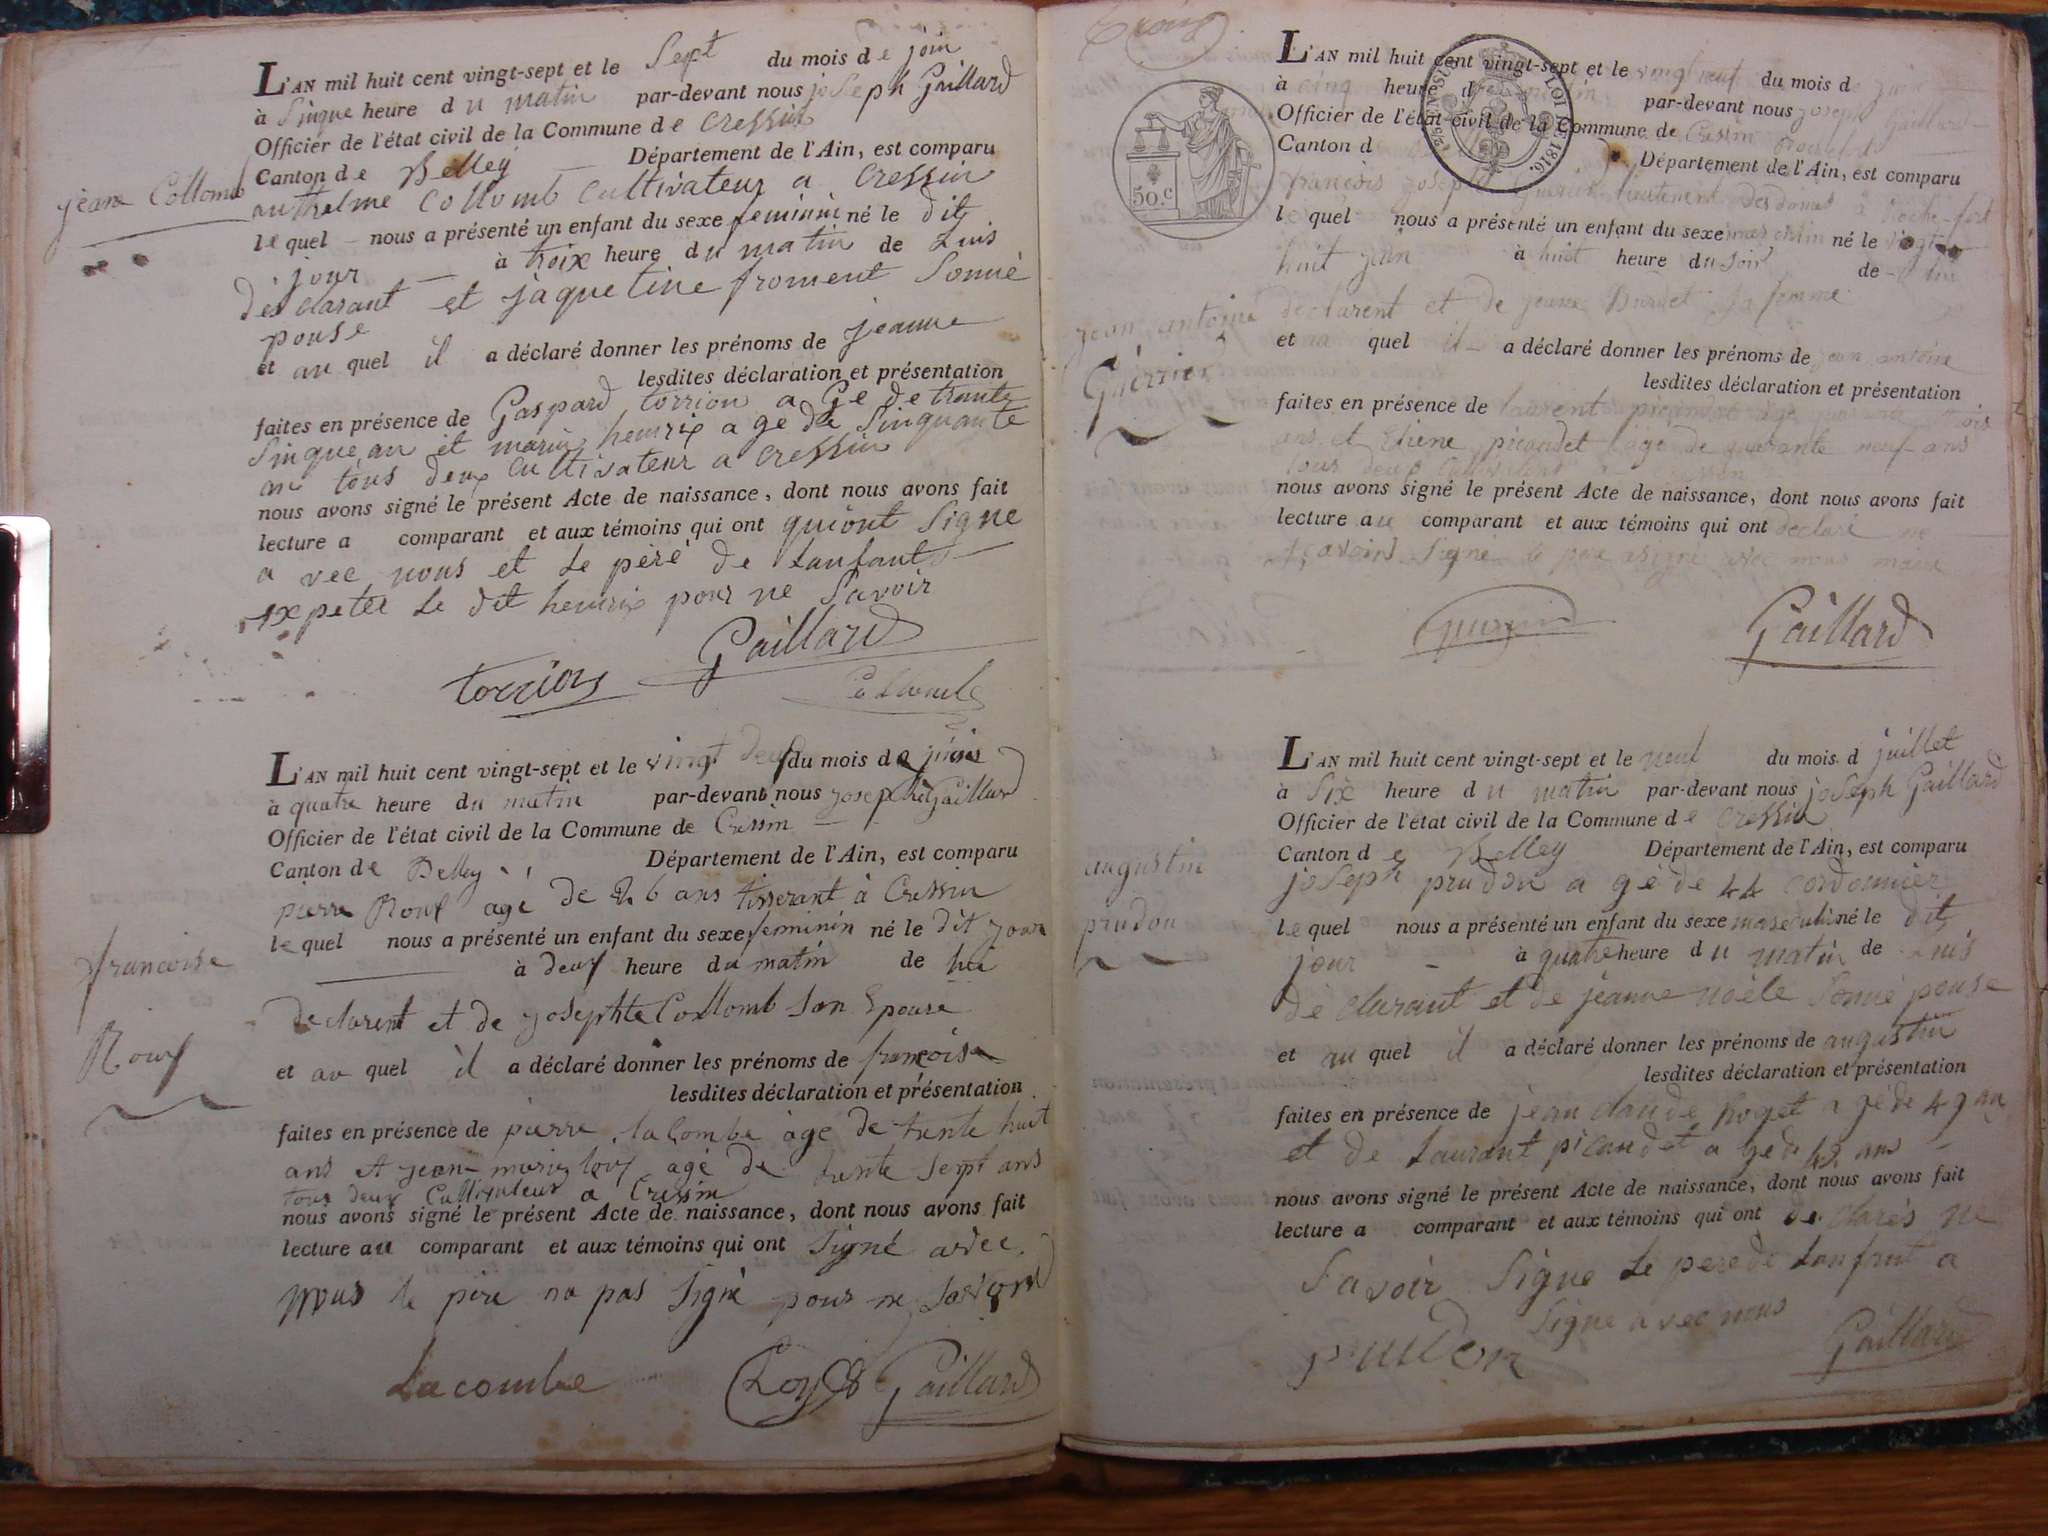 jeane Collomb
L'AN mil huit cent vingt-sept et le Sept du mois de join
à Sinque heure du matin par-devant nous joSeph Gaillard
Officier de l'état civil de la Commune de Cressin
Canton de Belley Département de l'Ain, est comparu
anthelme Collomb Cultivateur a Cressin
lequel nous a présenté un enfant du sexe feminin né le dit
jour à troix heure du matin de Luis
declarant et jaquetine froment Sonné
pouse
et au quel il a déclaré donner les prénoms de jeanne
lesdites déclaration et présentation
faites en présence de Gaspard torrion a Ge de trante
Sinque an et marin henrix a ge de Sinquante
an tous deux Cultivateur a Cressin
nous avons signé le présent Acte de naissance, dont nous avons fait
lecture a comparant et aux témoins qui ont quiont Signe
a vec nous et Le péré de Lanfant
expeté Le dit henrix pour ne Savoir
Gaillard
torrion
Collomb
francoise
Roux
L'AN mil huit cent vingt-sept et le vingt deux du mois de juin
à quatre heure du matin par-devant nous joseph Gaillard
Officier de l'état civil de la Commune de Cressin
Canton de Belley Département de l'Ain, est comparu
pierre Roux agé de 26 ans tisserant à Cressin
lequel nous a présenté un enfant du sexe feminin né le dit jour
à deux heure du matin de lui
declarent et de josephte Collomb son Epouse
et au quel il a déclaré donner les prénoms de francoise
lesdites déclaration et présentation
faites en présence de pierre lacombe agé de trente huit
ans et jean-marie loux agé de trente sept ans
tous deux Cultivateur a Cressin
nous avons signé le présent Acte de naissance, dont nous avons fait
lecture au comparant et aux témoins qui ont signé avec
nous le pere na pas signé pour ne savoir
Lacombe Gaillard
50.c
LOI DE 1816.
jean antoine
Guérrier
L'AN mil huit cent vingt-sept et le vingt neuf du mois de juin
à cinq heure du matin par-devant nous joseph Gaillard
Officier de l'état civil de la Commune de Cressin
Canton d Département de l'Ain, est comparu
francois joseph lieutenent des douanes a Roche-fort
lequel nous a présenté un enfant du sexe masculin né le vingt
huit juin à huit heure du soir de lui
declarent et de jeane Burdet sa femme
et au quel il a déclaré donner les prénoms de jean antoine
lesdites déclaration et présentation
faites en présence de laurent picondet agé quarante trois
ans et Etiene picondet agé de quarante neuf ans
tous deux Cultivateur a Cressin
nous avons signé le présent Acte de naissance, dont nous avons fait
lecture au comparant et aux témoins qui ont declaré ne
savoir Signé le pere a signé avec nous maire
Gaillard
augustin
prudon
L'AN mil huit cent vingt-sept et le neuf du mois d juillet
à Six heure du matin par-devant nous joSeph Gaillard
Officier de l'état civil de la Commune de Cressin
Canton de Belley Département de l'Ain, est comparu
joSeph prudon a gé de 44 cordonnier
lequel nous a présenté un enfant du sexe masculin né le dit
jour à quatre heure du matin de Luis
dé clarant et de jéanne noéle Sonné pouse
et au quel il a déclaré donner les prénoms de augustin
lesdites déclaration et présentation
faites en présence de jean claude Roget a gé de 49 an
et de Laurant picandet a gé de 43 ans
nous avons signé le présent Acte de naissance, dont nous avons fait
lecture a comparant et aux témoins qui ont de clarés ne
Savoir Signe Le pere de Lanfant a
Signe a vec nous
prudon Gaillard